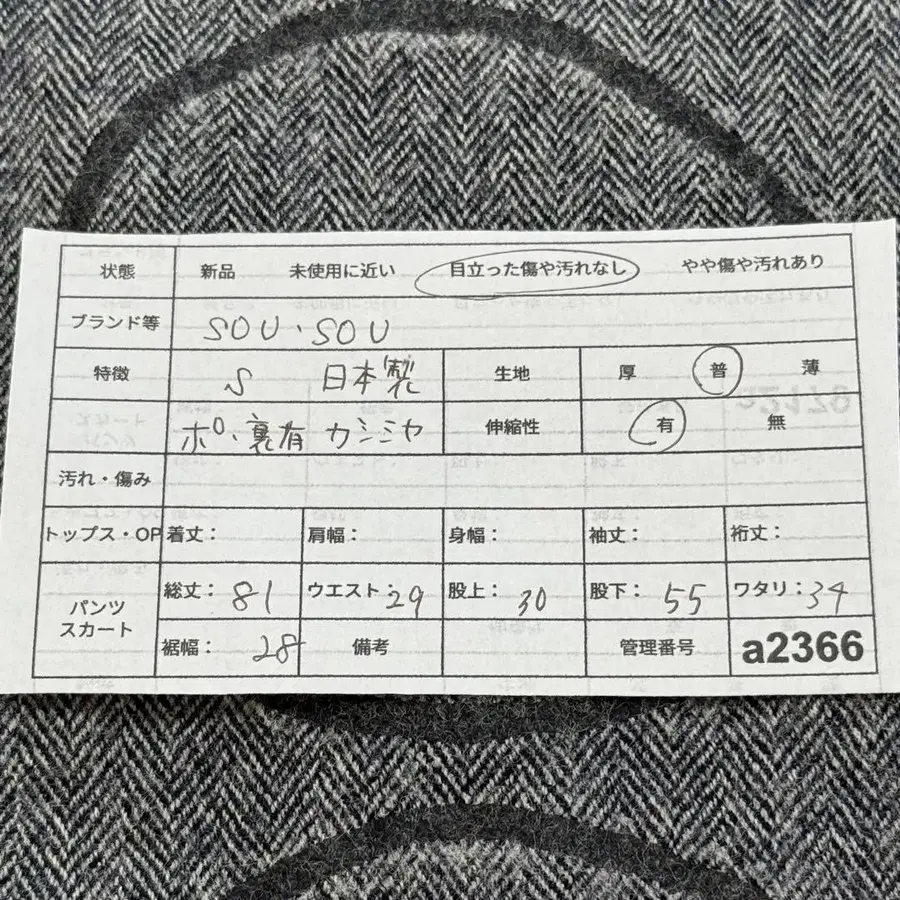 状態 新品 未使用に近い 目立った傷や汚れなし やや傷や汚れあり
ブランド等 SOU・SOU
特徴 S 日本製 生地 厚 普 薄
ポ、裏有 カシミヤ 伸縮性 有 無
汚れ・傷み
トップス・OP 着丈： 肩幅： 身幅： 袖丈： 裄丈：
パンツ スカート 総丈：81 ウエスト：29 股上：30 股下：55 ワタリ：34
裾幅：28 備考 管理番号 a2366